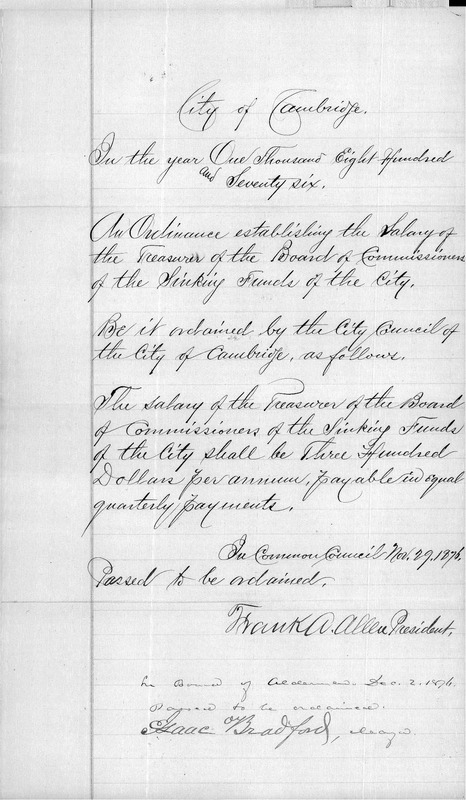 City of Cambridge.
In the year One Thousand Eight Hundred
and Seventy six.
An Ordinance establishing the Salary of
the Treasurer of the Board of Commissioners
of the Sinking Funds of the City.
Be it ordained by the City Council of
the City of Cambridge, as follows.
The salary of the Treasurer of the Board
of Commissioners of the Sinking Funds
of the City shall be Three Hundred
Dollars per annum, payable in equal
quarterly payments.
In Common Council Nov. 29. 1876.
Passed to be ordained.
Frank A. Allen President.
In Board of Aldermen. Dec. 2. 1876.
Passed to be ordained.
Isaac Bradford, Mayor.